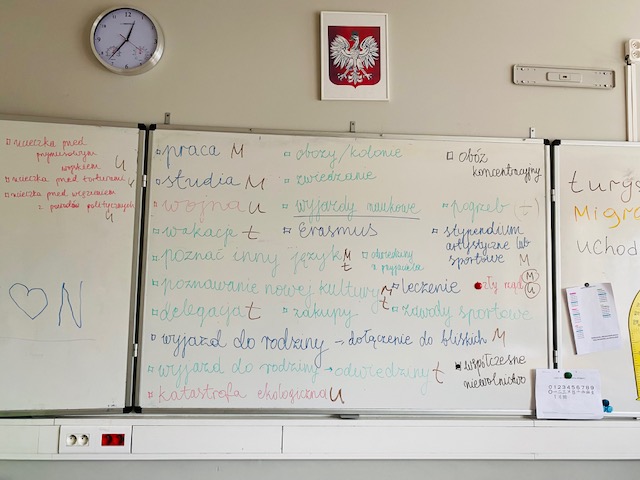 ucieczka przed
przymusowym
wojskiem U
ucieczka przed torturami U
ucieczka przed więzieniem
z powodów politycznych
U
N
praca M
studia M
wojna U
wakacje t
poznać inny język M
t
poznawanie nowej kultury M
t
delegacja t
wyjazd do rodziny → dołączenie do bliskich M
wyjazd do rodziny → odwiedziny t
katastrofa ekologiczna U
obozy/kolonie
zwiedzanie
wyjazdy naukowe
Erasmus
odwiedziny
u przyjaciela
leczenie
zakupy
obóz
koncentracyjny
pogrzeb
stypendium
artystyczne lub
sportowe M
zły rząd M
U
zawody sportowe
współczesne
niewolnictwo
turys
Migra
uchod
0123456789